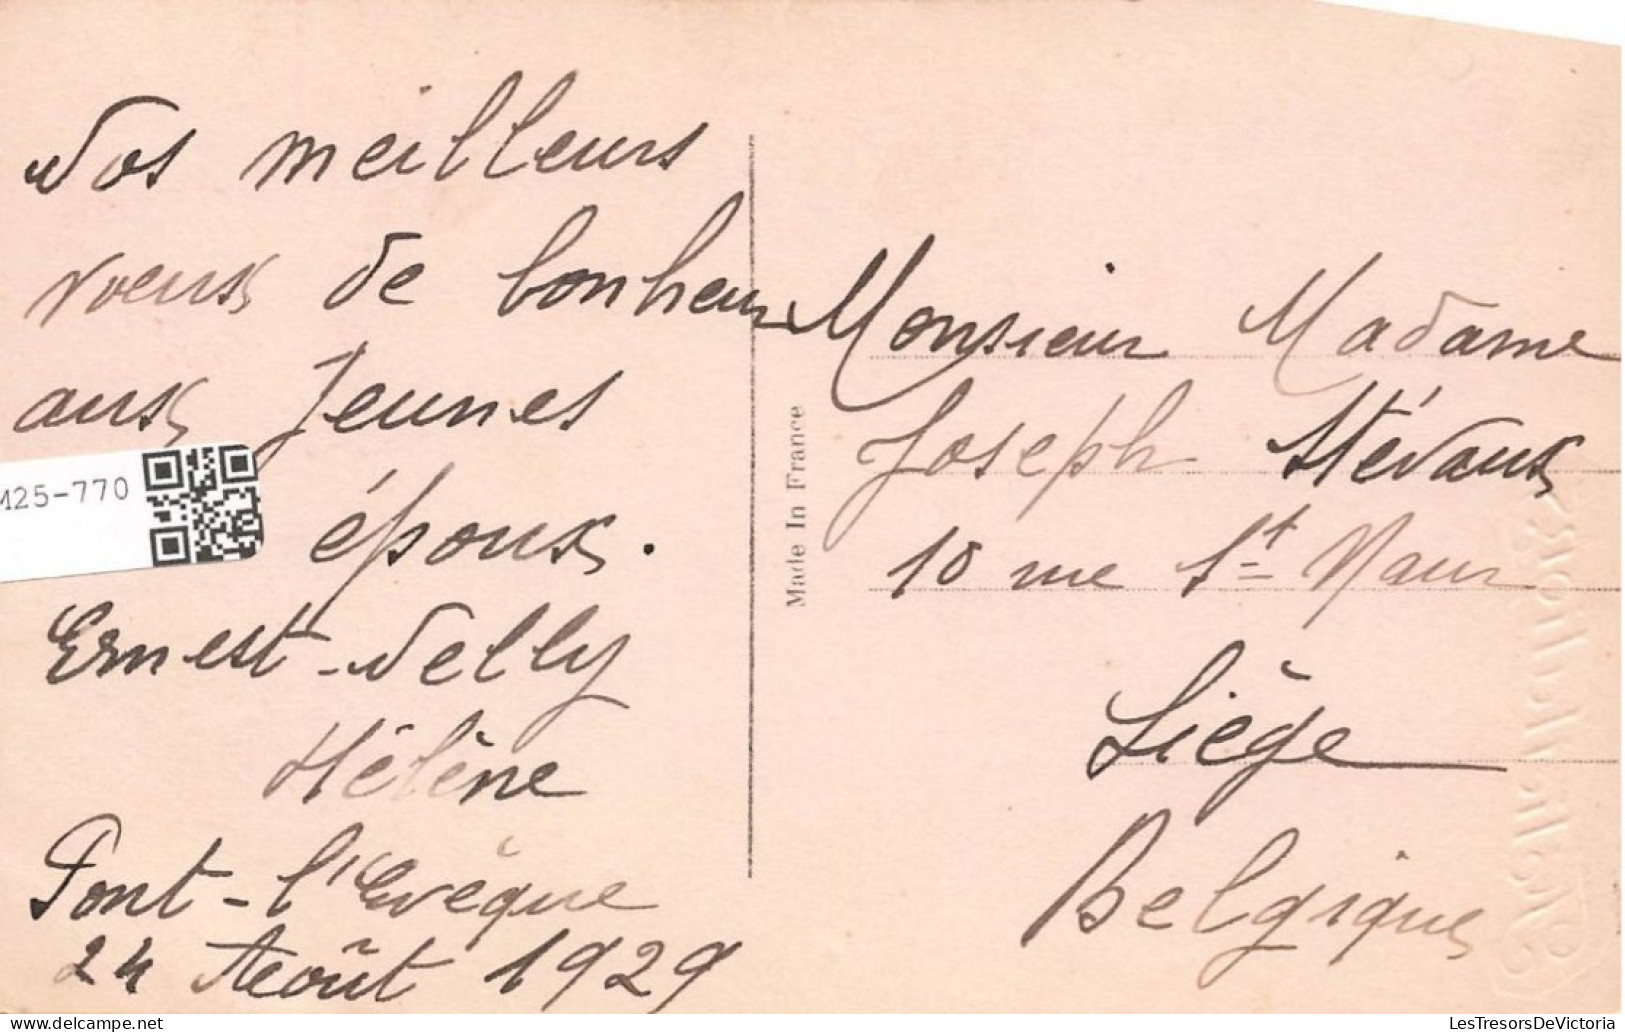 Nos meilleurs
voeux de bonheur
aux Jeunes
époux.
Ernest - Nelly
Hélène
Pont-l'Evêque
24 Août 1929
M25-770
Made In France
Monsieur Madame
Joseph Stévaux
10 rue St Maur
Liège
Belgique
LesTresorsDeVictoria